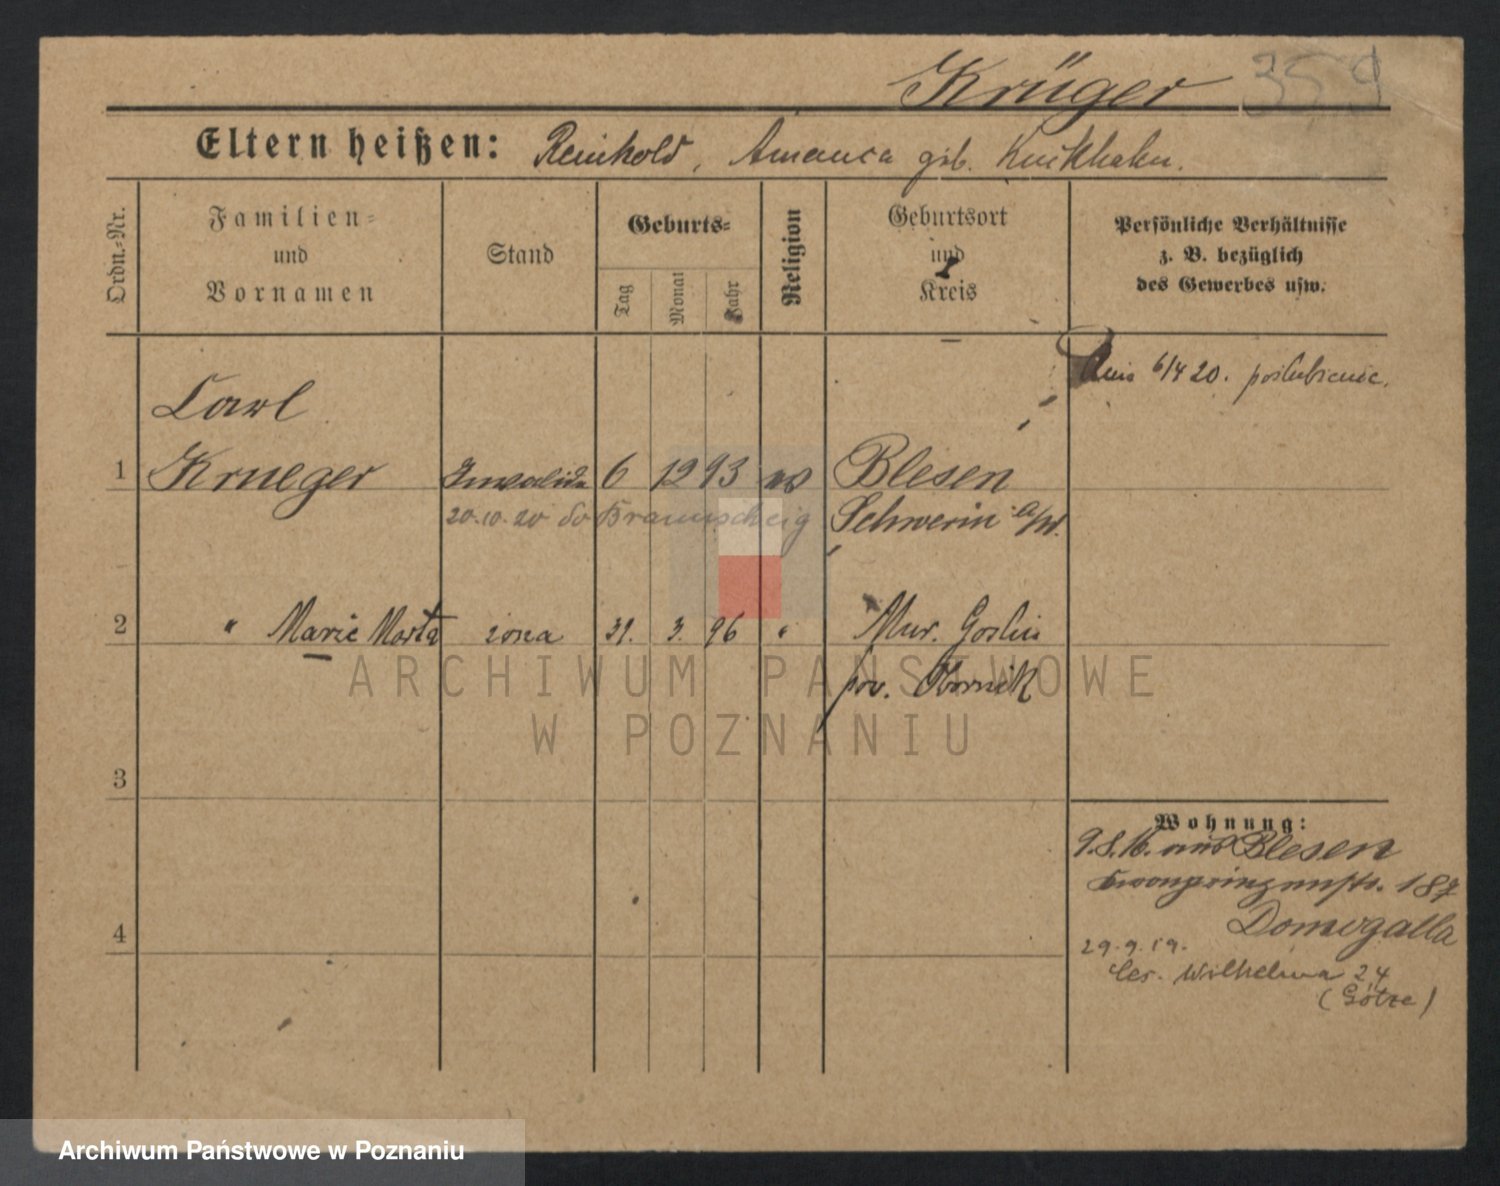 Krüger 359
Eltern heißen: Reinhold, Amanda geb. Kuckhahn.
Ordn.-Nr.
Familien-
und
Vornamen
Stand
Geburts-
Tag
Monat
Jahr
Religion
Geburtsort
und
Kreis
Persönliche Verhältnisse
z. B. bezüglich
des Gewerbes usw.
6/4 20. poślubienie.
Carl
1 Krueger Invalide 6 12 93 Blesen
20.10.20 Braunscheig Schwerin a/W.
2 " Marie Marta żona 31. 3. 96 " Mur. Goslin
pow. Obornik
3
4
Wohnung:
9.8.16. aus Blesen
Kronprinzenstr. 187
Domogalla
29.9.19.
Ces. Wilhelma 24
(Götze)
ARCHIWUM PAŃSTWOWE
W POZNANIU
Archiwum Państwowe w Poznaniu